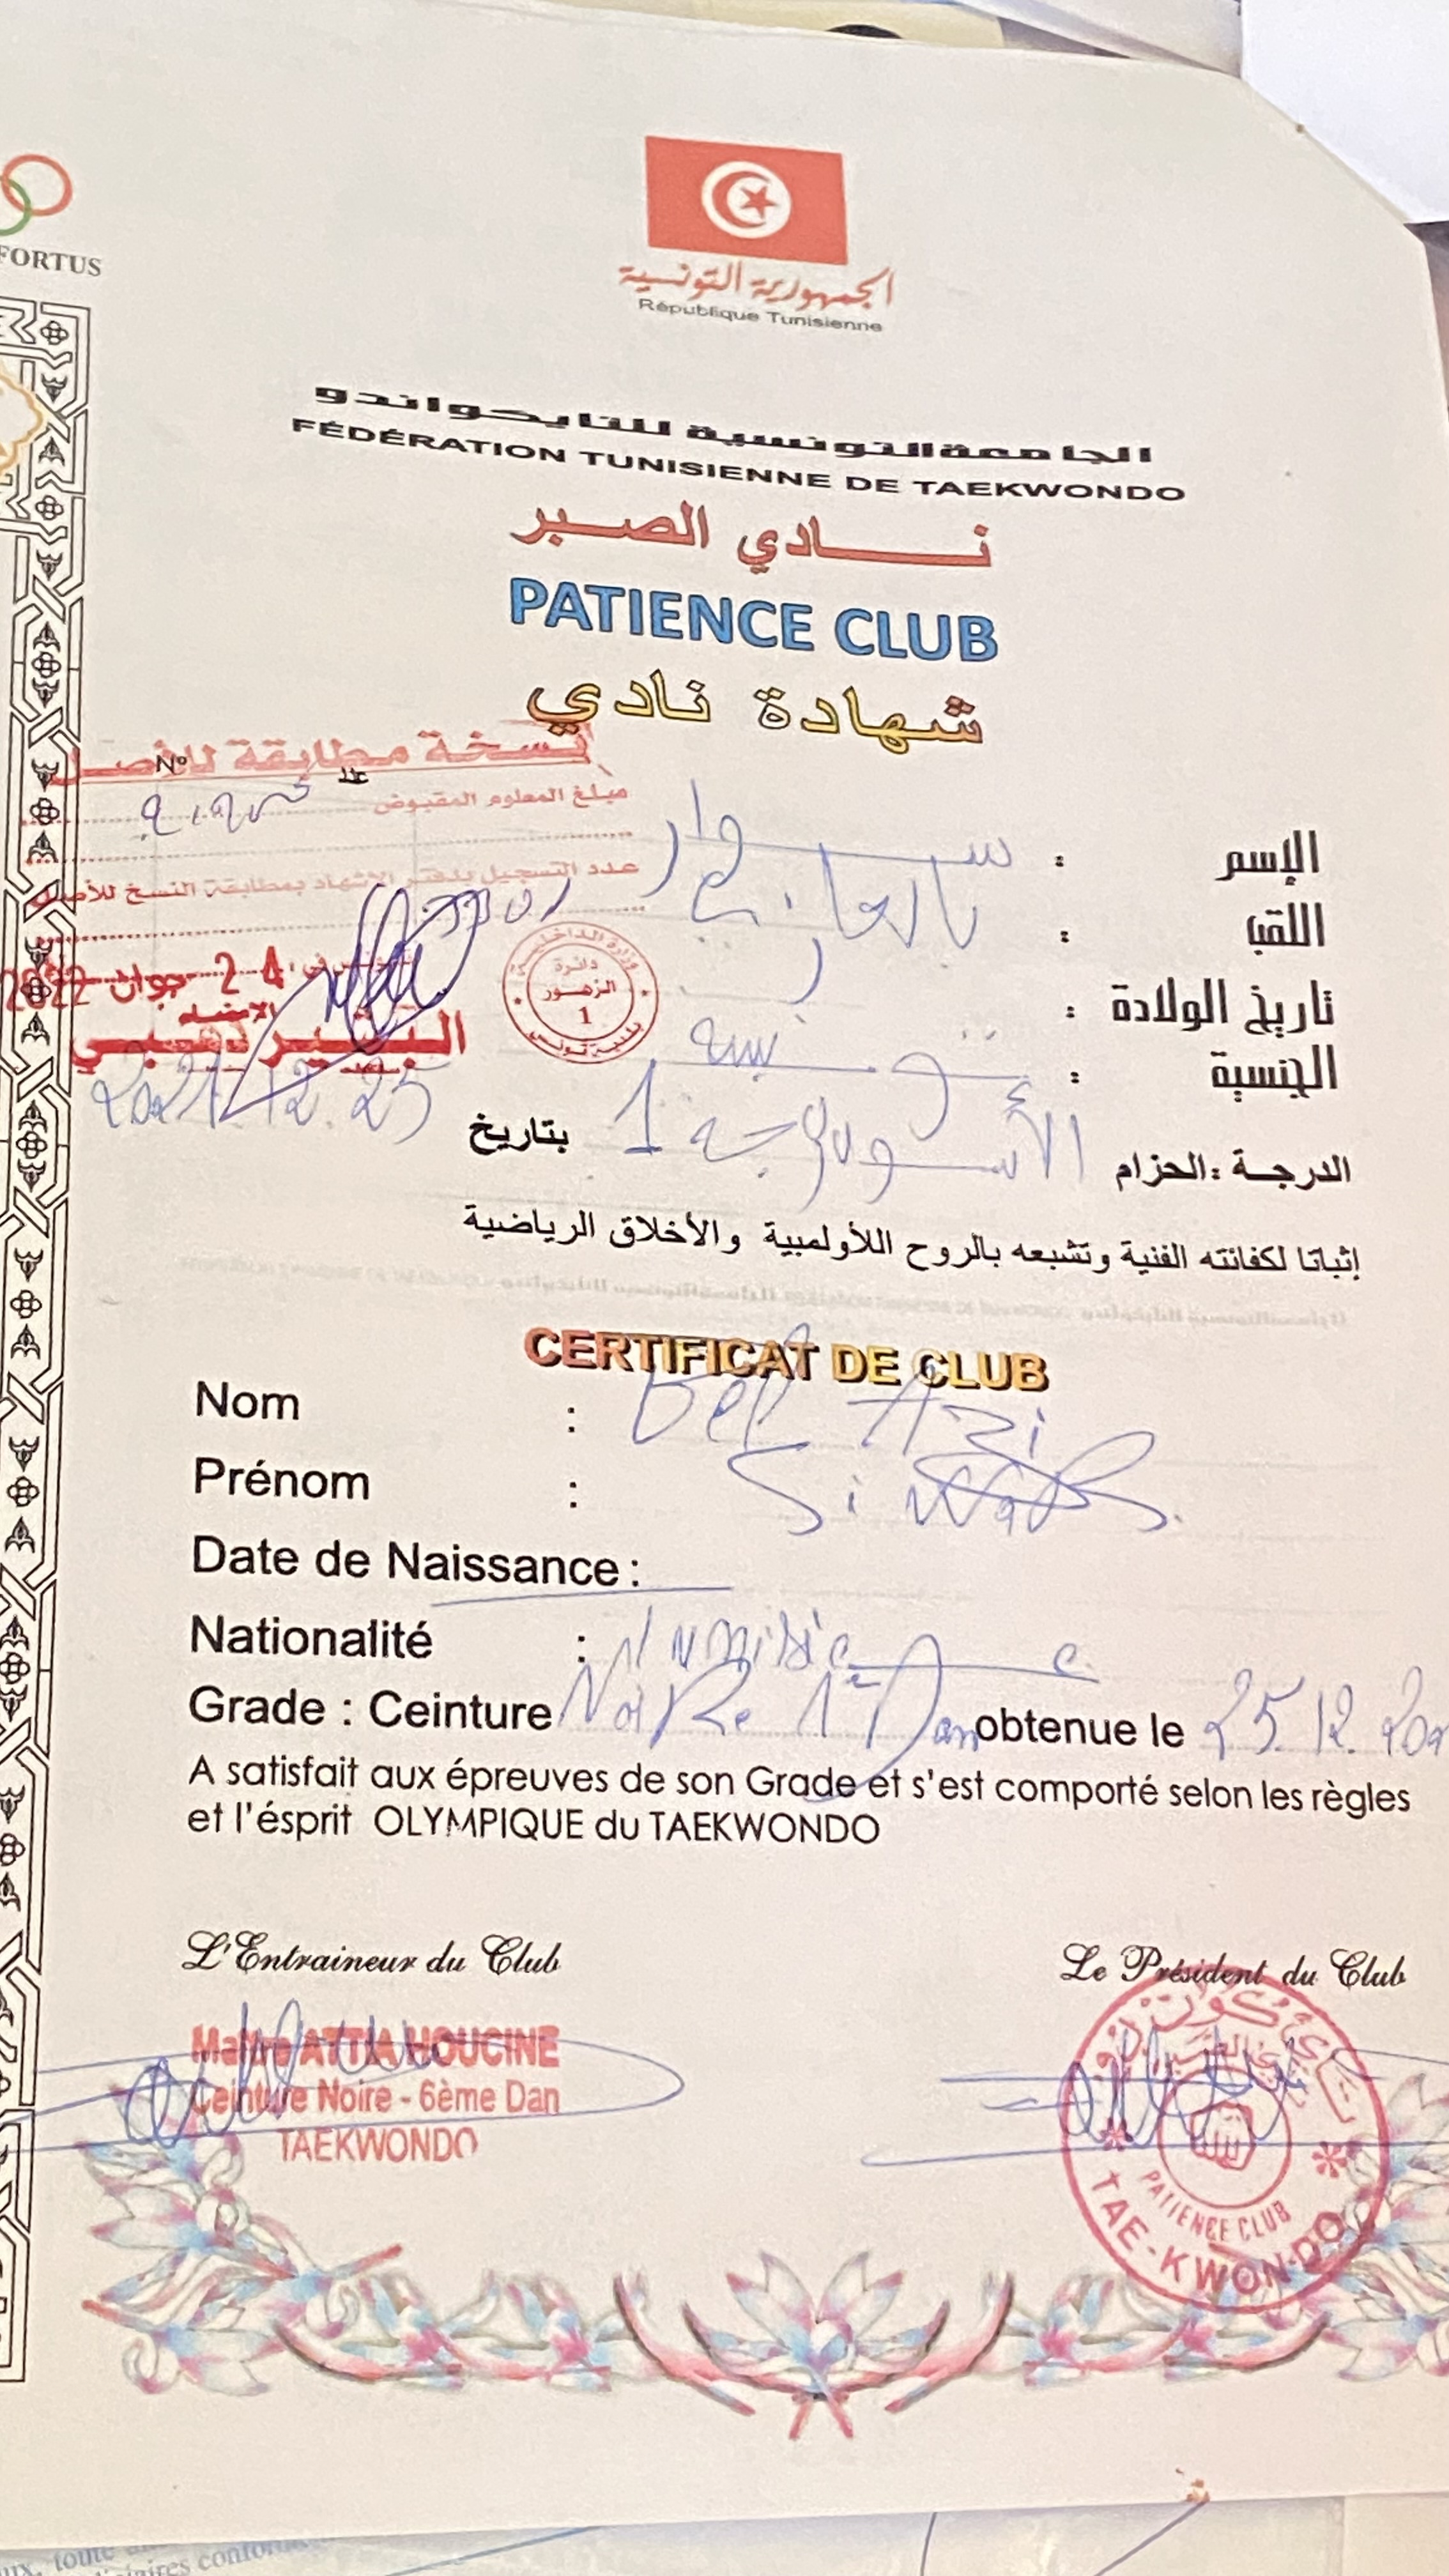 FORTUS
الجمهورية التونسية
République Tunisienne
الجامعة التونسية للتايكواندو
FÉDÉRATION TUNISIENNE DE TAEKWONDO
نادي الصبر
PATIENCE CLUB
شهادة نادي
نسخة مطابقة للأصل
N° عدد
مبلغ المعلوم المقبوض
عدد التسجيل بدفتر الاشهاد بمطابقة النسخ للأصل
تونس في 24 جوان 2022
الامضاء
وزارة الداخلية
دائرة
الزهور
1
بلدية تونس
الإسم : سوار
اللقب : بالعازي
تاريخ الولادة :
الجنسية : تونسية
الدرجة : الحزام الأسود درجة 1 بتاريخ 2021.12.25
إثباتا لكفائته الفنية وتشبعه بالروح اللأولمبية والأخلاق الرياضية
CERTIFICAT DE CLUB
Nom : Bel Azi
Prénom : Siwar
Date de Naissance :
Nationalité : Tunisienne
Grade : Ceinture Noire 1e Dan obtenue le 25.12.202
A satisfait aux épreuves de son Grade et s'est comporté selon les règles
et l'ésprit OLYMPIQUE du TAEKWONDO
L'Entraineur du Club
Le Président du Club
Maitre ATTIA HOUCINE
Ceinture Noire - 6ème Dan
TAEKWONDO
PATIENCE CLUB
TAE-KWON-DO